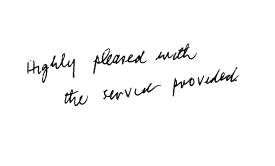 Highly pleased with
the service provided.